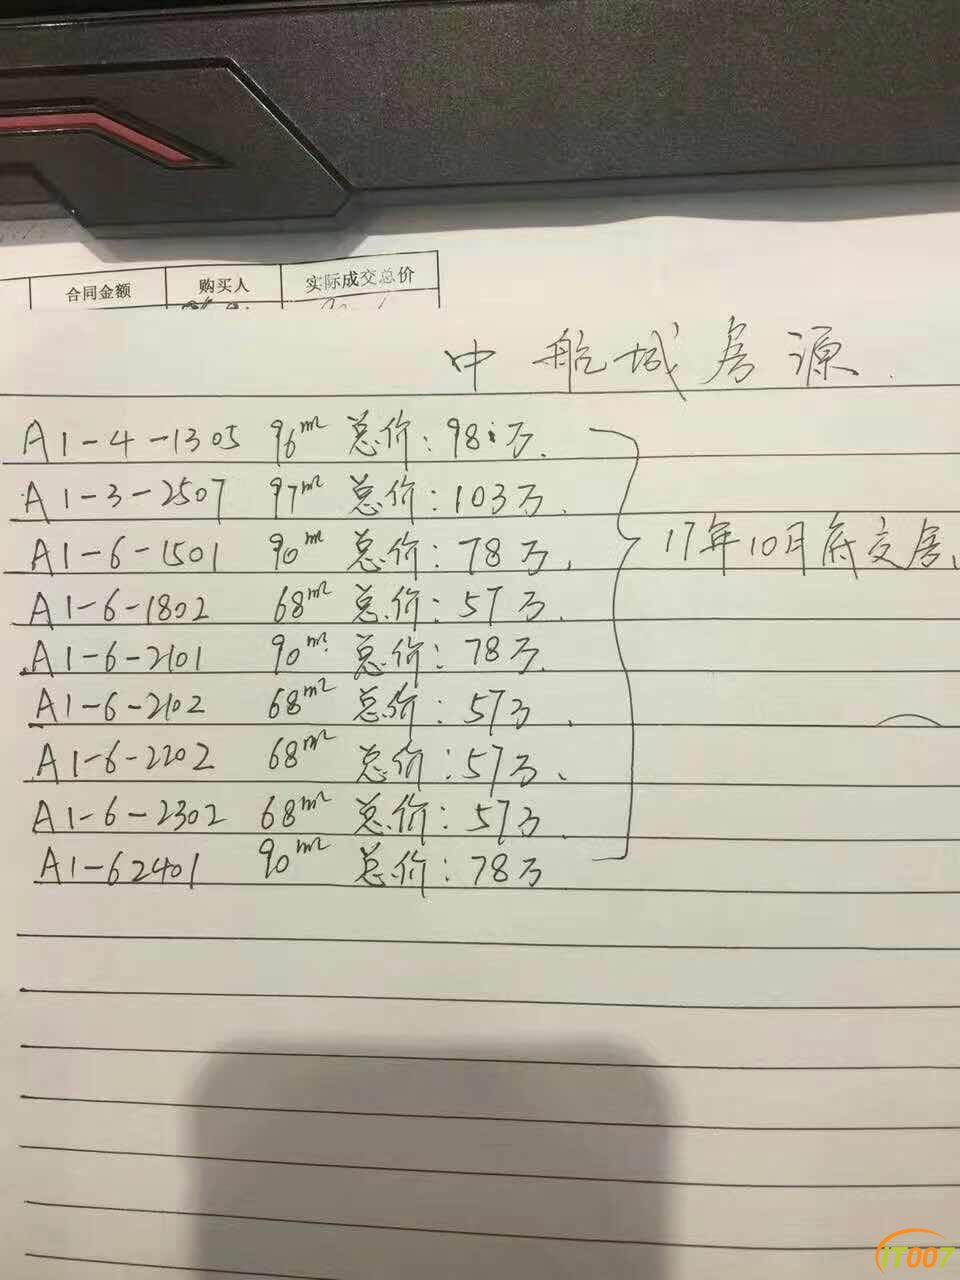 合同金额 购买人 实际成交总价
中航城房源
A1-4-1305 96m² 总价:98万.
A1-3-2507 97m² 总价:103万.
A1-6-1501 90m² 总价:78万.
17年10月底交房.
A1-6-1802 68m² 总价:57万.
A1-6-2101 90m² 总价:78万.
A1-6-2102 68m² 总价:57万.
A1-6-2202 68m² 总价:57万.
A1-6-2302 68m² 总价:57万.
A1-62401 90m² 总价:78万
IT007